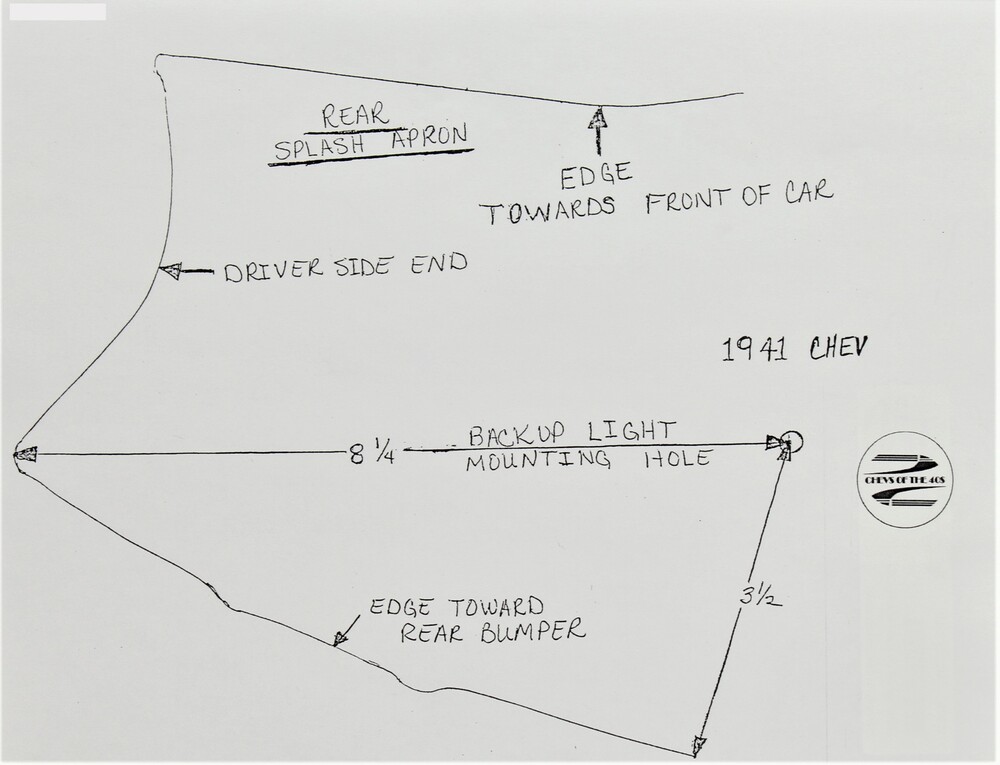 REAR
SPLASH APRON
EDGE
TOWARDS FRONT OF CAR
DRIVER SIDE END
1941 CHEV
8 1/4
BACKUP LIGHT
MOUNTING HOLE
CHEVS OF THE 40S
3 1/2
EDGE TOWARD
REAR BUMPER